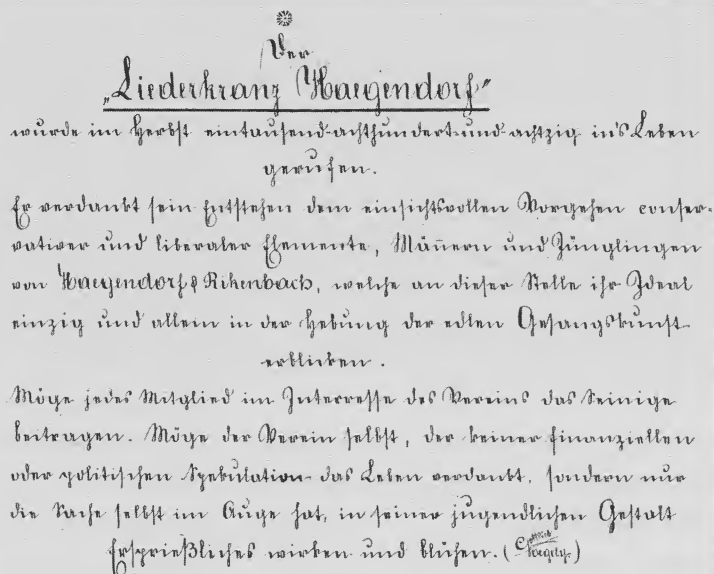 Der
„Liederkranz Haegendorf"
wurde im Herbst eintausend-achthundert-und-achtzig in's Leben
gerufen.
Er verdankt sein Entstehen dem einsichtsvollen Vorgehen conser-
vativer und liberaler Elemente, Männern und Jünglingen
von Haegendorf & Rikenbach, welche an dieser Stelle ihr Ideal
einzig und allein in der Hebung der edlen Gesangskunst
erblicken.
Möge jedes Mitglied im Interresse des Vereins das Seinige
beitragen. Möge der Verein selbst, der keiner finanziellen
oder politischen Spekulation das Leben verdankt, sondern nur
die Sache selbst im Auge hat, in seiner jugendlichen Gestalt
Ersprießliches wirken und blühen. (